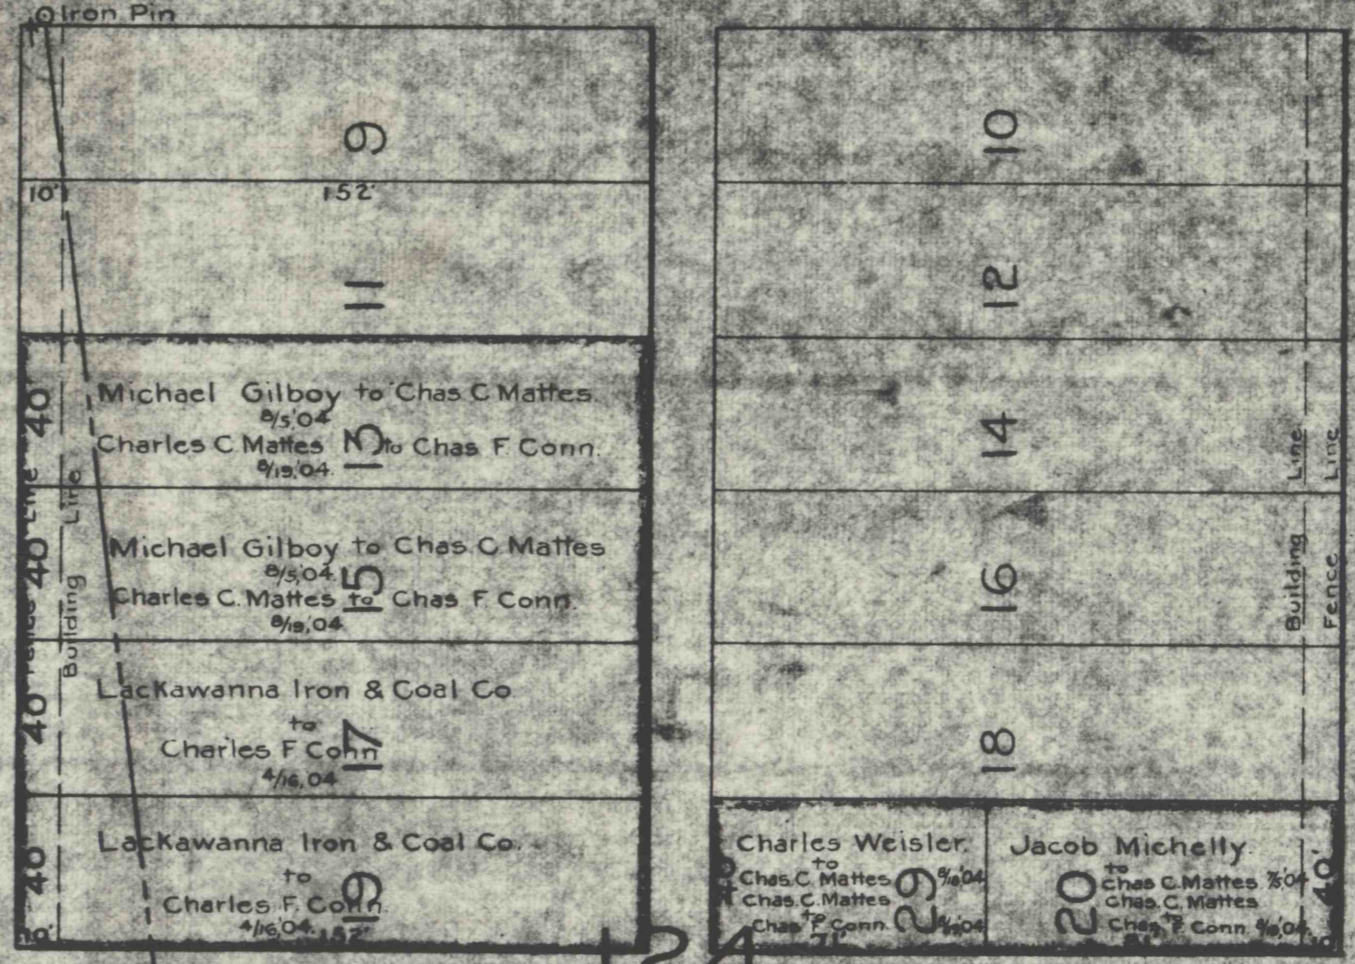 Iron Pin
9
10'
152'
11
40'
Michael Gilboy to Chas. C. Mattes.
8/5,'04
Charles C. Mattes to Chas. F. Conn.
8/19,'04.
13
40'
Line
Building Line
Michael Gilboy to Chas. C. Mattes
8/5,'04.
Charles C. Mattes to Chas. F. Conn.
8/19,'04
15
40'
Lackawanna Iron & Coal Co
to
Charles F. Conn
4/16,'04
17
40'
Lackawanna Iron & Coal Co.
to
Charles F. Conn
4/16,'04.
19
10'
152'
10
12
14
16
18
Building Line
Fence Line
40'
Charles Weisler.
to
Chas. C. Mattes
Chas. C. Mattes
to
Chas. F. Conn
29
71'
Jacob Michelly.
to
Chas. C. Mattes
Chas. C. Mattes
to
Chas. F. Conn
20
81'
40'
10'